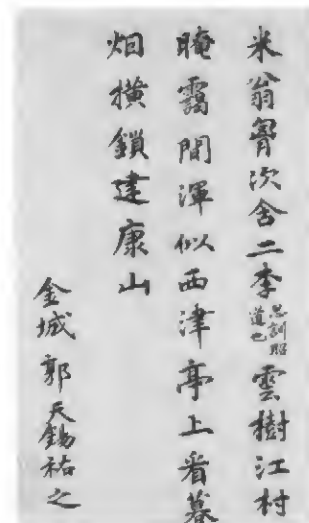 米翁胷次舍二李思訓昭道也雲樹江村
晻靄間渾似西津亭上看暮
烟橫鎖建康山
金城郭天錫祐之